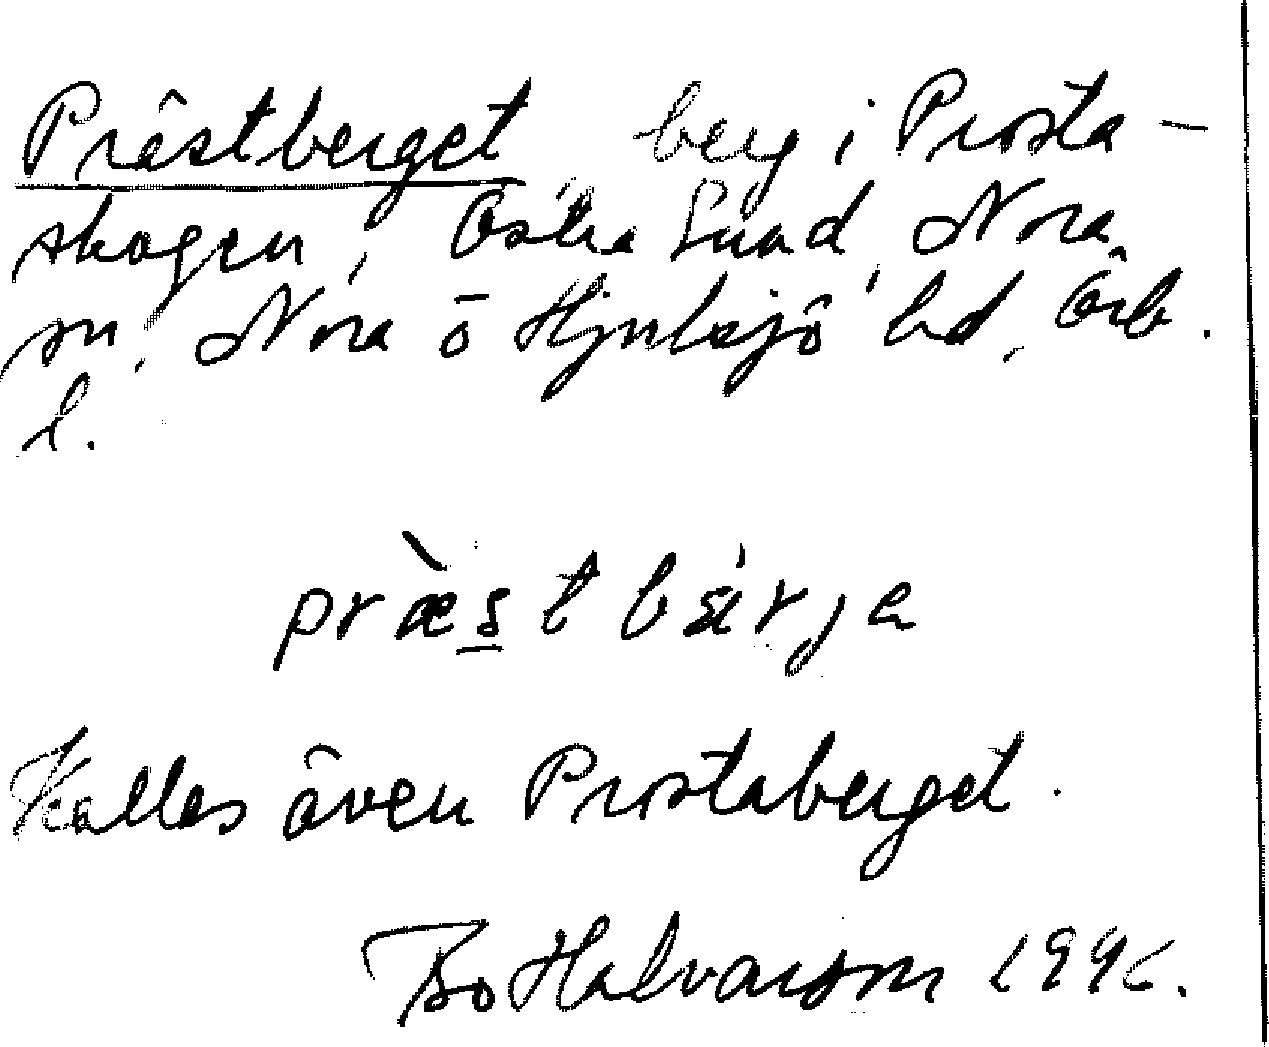 Prästberget berg i Prosta-
skogen, Östra Sund, Nora
sn, Nora o Hjulsjö hd, Örb.
l.
præ̀st bárja
Kallas även Prostaberget.
Bo Halvarson 199